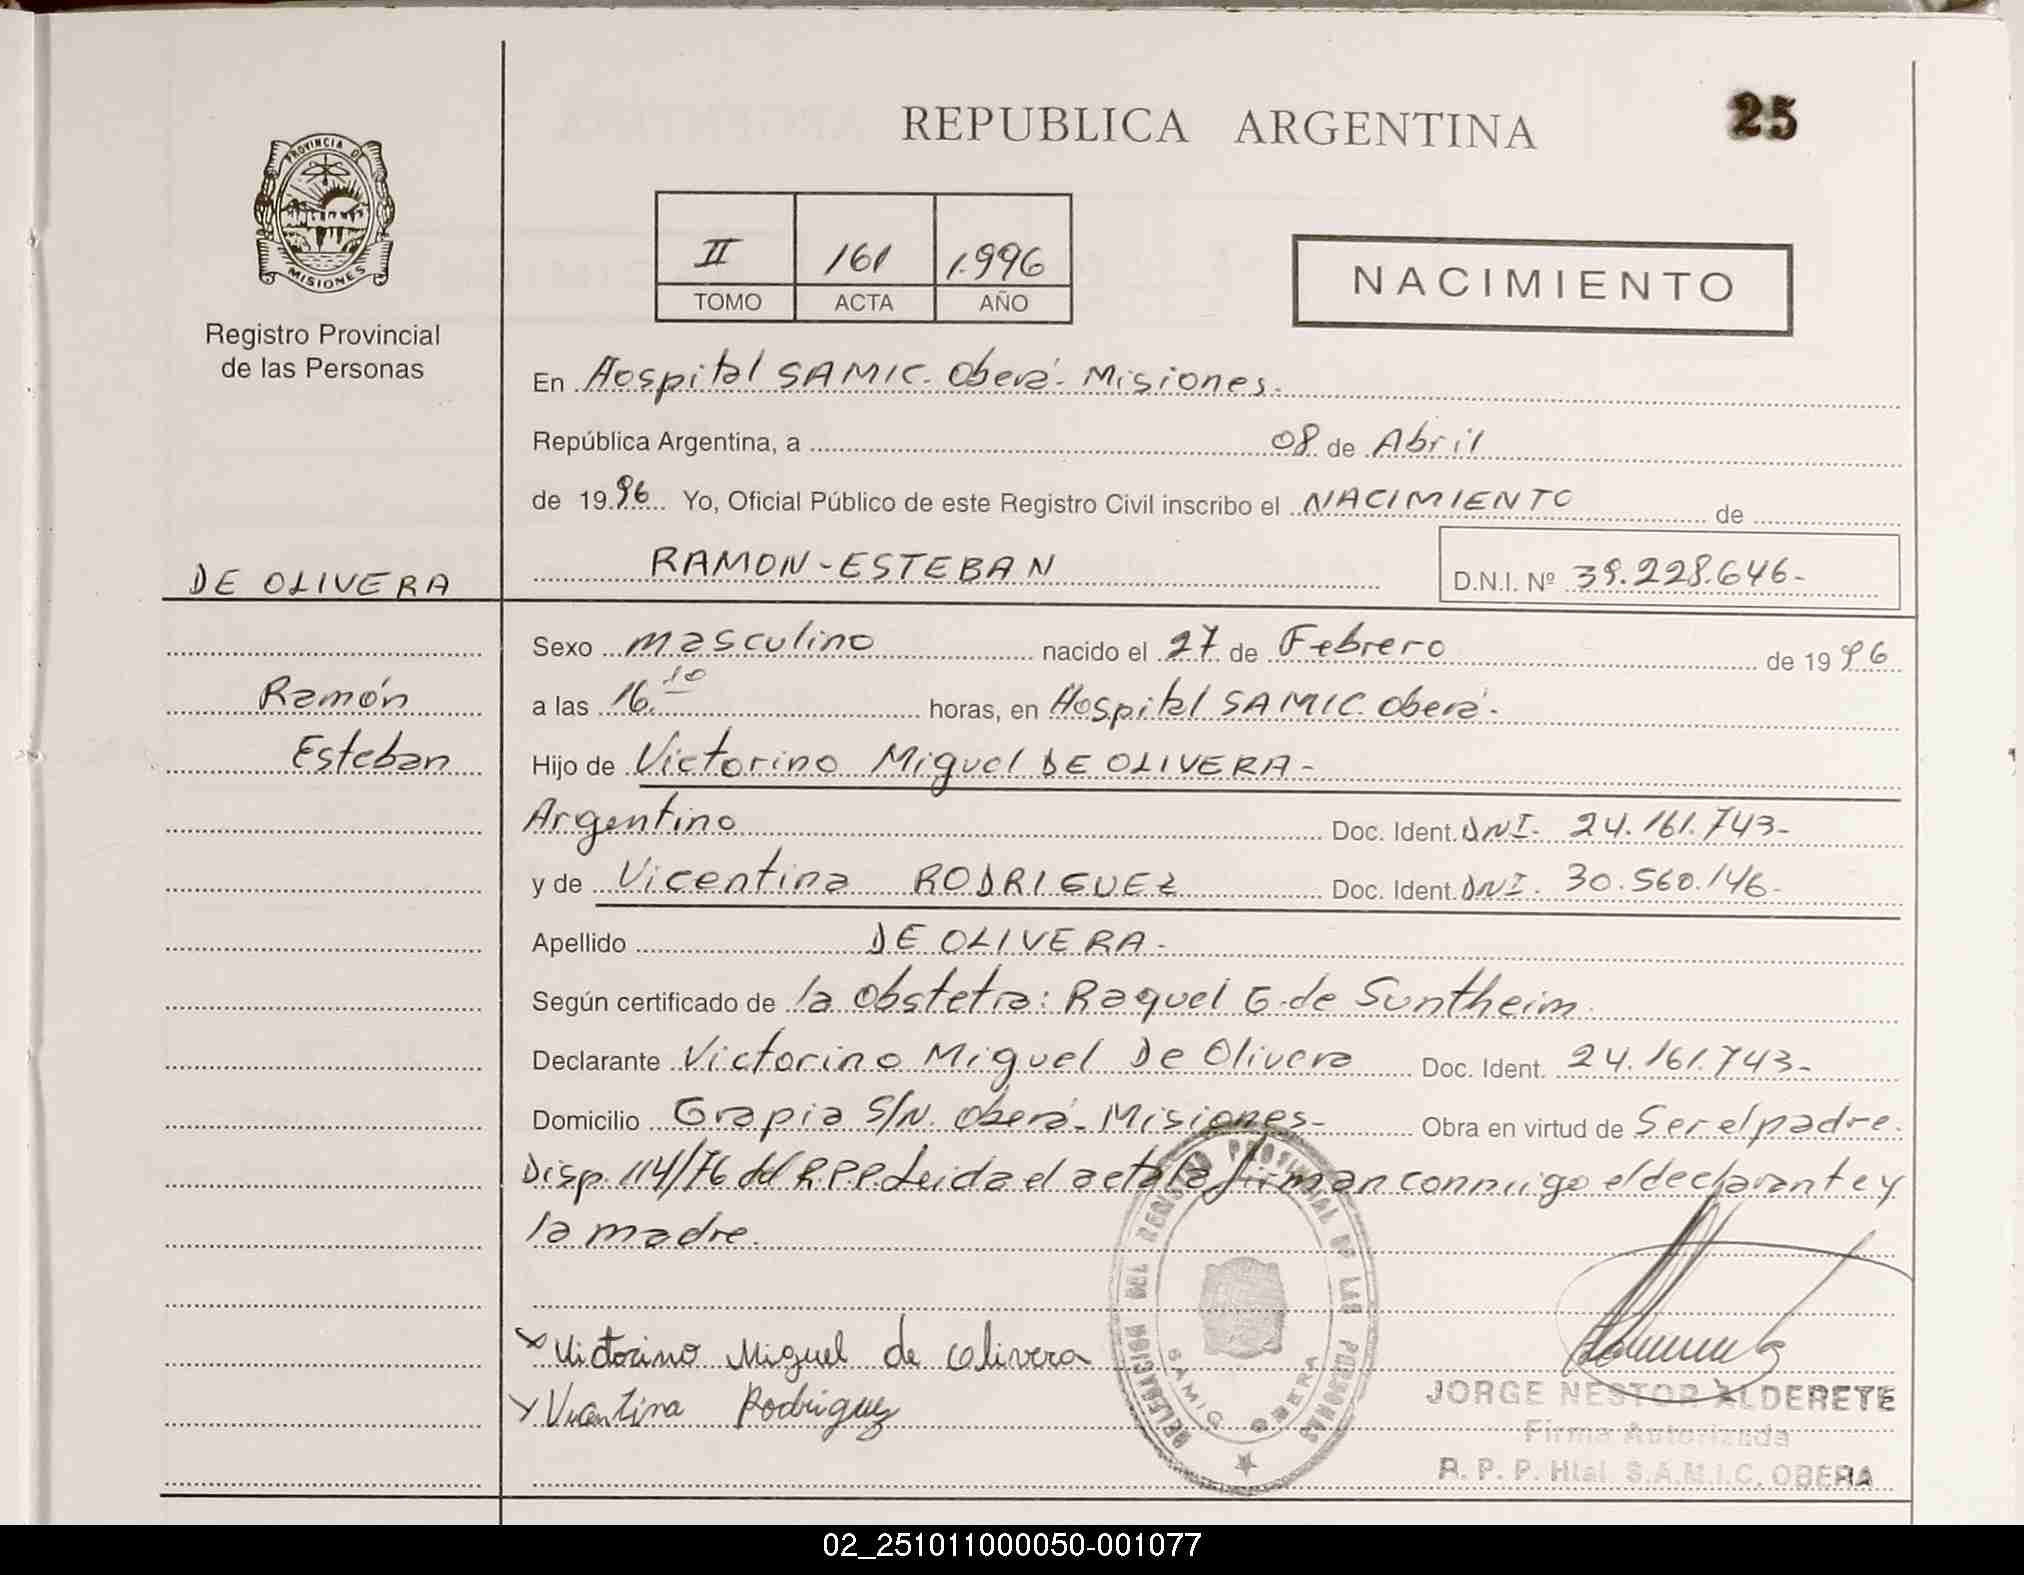 REPUBLICA ARGENTINA
25
PROVINCIA DE
MISIONES
Registro Provincial
de las Personas
II 161 1.996
TOMO ACTA AÑO
NACIMIENTO
En Hospital SAMIC. Oberá - Misiones.
República Argentina, a 08 de Abril
de 1996 Yo, Oficial Público de este Registro Civil inscribo el NACIMIENTO de
DE OLIVERA
RAMON-ESTEBAN D.N.I. Nº 39.228.646-
Sexo masculino nacido el 27 de Febrero de 1996
Ramón
a las 16.10 horas, en Hospital SAMIC. Oberá.
Esteban
Hijo de Victorino Miguel DE OLIVERA-
Argentino Doc. Ident. DNI. 24.161.743-
y de Vicentina RODRIGUEZ Doc. Ident. DNI. 30.560.146-
Apellido DE OLIVERA-
Según certificado de la Obstetra: Raquel G. de Suntheim.
Declarante Victorino Miguel De Olivera Doc. Ident. 24.161.743-
Domicilio Grapia S/N. Oberá - Misiones- Obra en virtud de Ser el padre.
Disp. 114/76 del R.P.P. Leida el acta la firman conmigo el declarante y
la madre.
DELEGACION DEL REGISTRO PROVINCIAL DE LAS PERSONAS
SAMIC OBERA
x Victorino Miguel de Olivera
x Vicentina Rodriguez
JORGE NESTOR ALDERETE
Firma Autorizada
R. P. P. Htal. S.A.M.I.C. OBERA
02_251011000050-001077